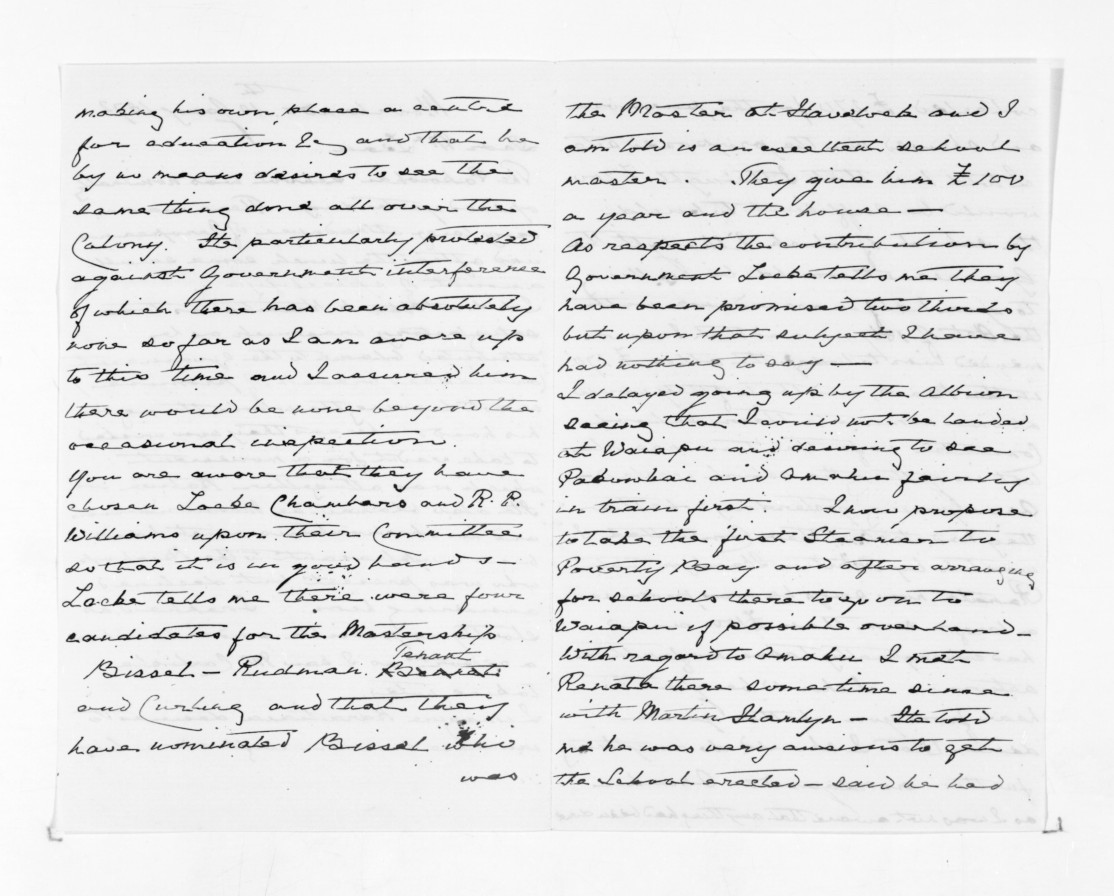 making his own place a centre
for education &c, and that he
by no means desires to see the
same thing done all over the
Colony. He particularly protested
against Government interference
of which there has been absolutely
none so far as I am aware up
to this time and I assured him
there would be none beyond the
occasional inspection
You are aware that they have
chosen Locke Chambers and R. R.
Williams upon their Committee
so that it is in good hands -
Locke tells me there were four
candidates for the Mastership
Bissel - Rudman. Tenant
and Curling and that they
have nominated Bissel who
was
the Master at Havelock and I
am told is an excellent school
master They give him £100
a year and the house -
As respects the contribution by
Government Locke tells me they
have been promised two thirds
but upon that subject I have
had nothing to say -
I delayed going up by the Albion
seeing that I could not be landed
at Waiapu and desiring to see
Pakowhai and Omahu fairly
in train first. I now propose
to take the first Steamer to
Poverty Bay and after arranging
for schools there to go on to
Waiapu if possible overland -
With regard to Omahu I met
Renata there some time since
with Martin Hamlyn - He told
me he was very anxious to get
the School erected - said he had